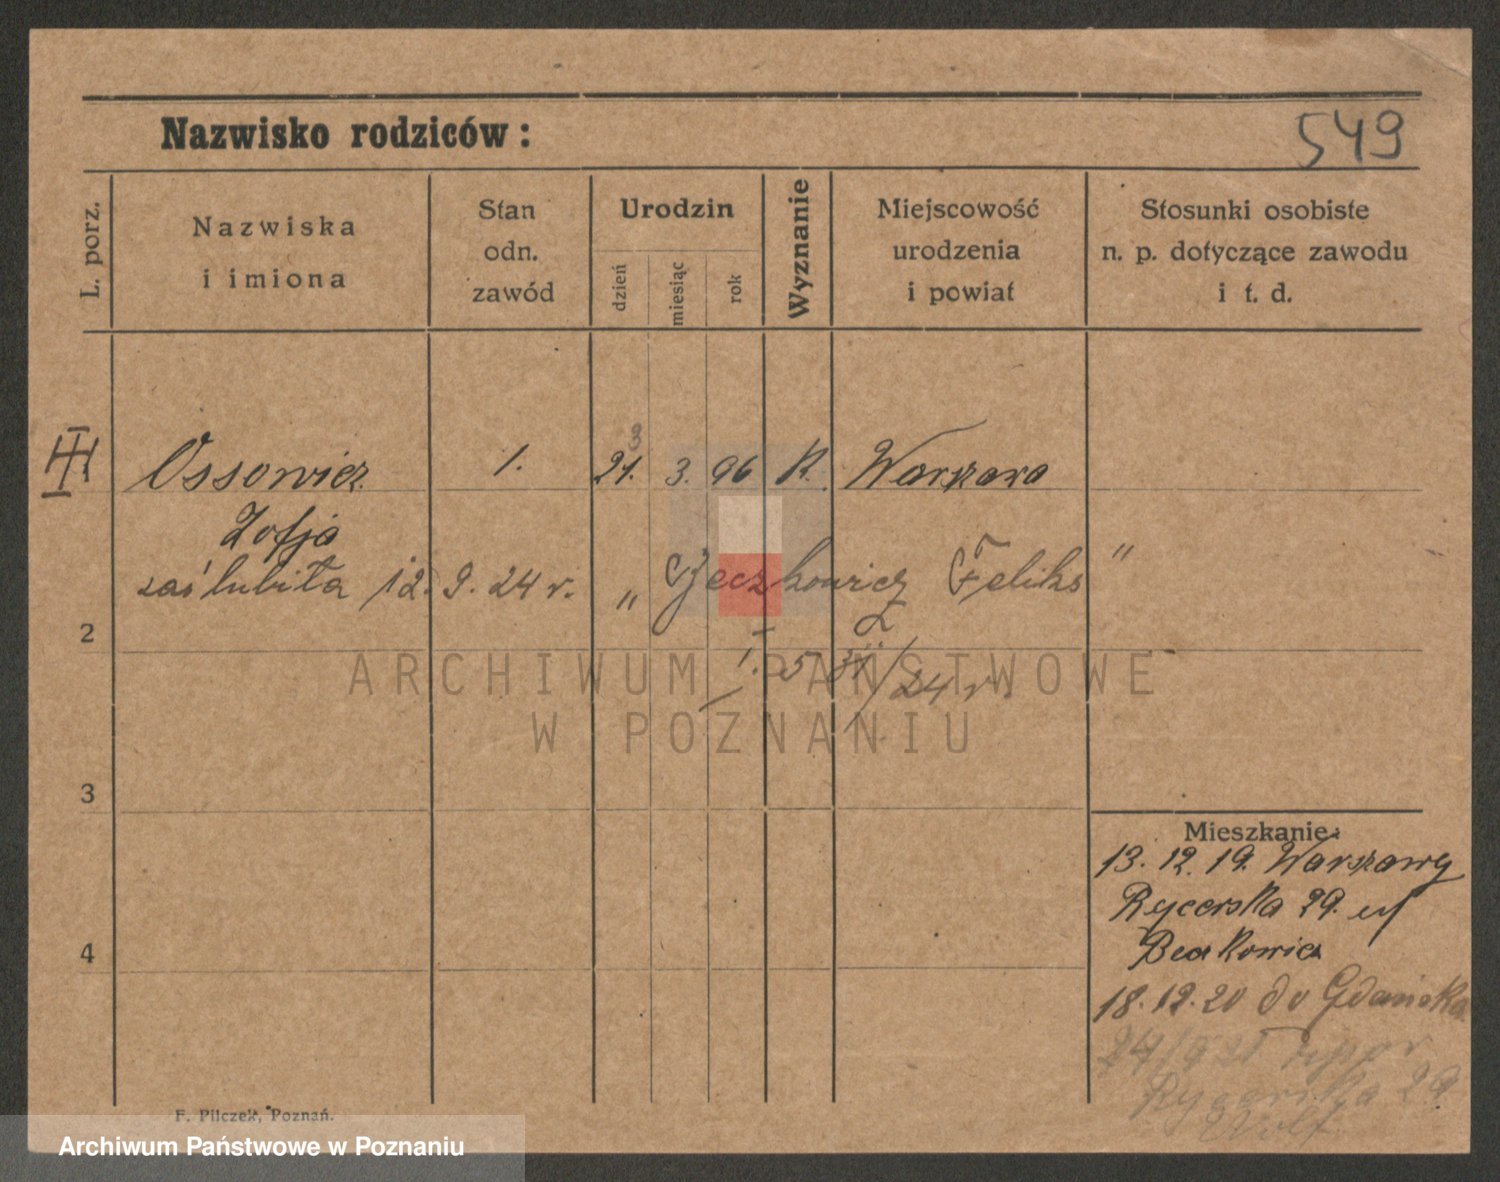 Nazwisko rodziców:
549
L. porz.
Nazwiska
i imiona
Stan
odn.
zawód
Urodzin
dzień
miesiąc
rok
Wyznanie
Miejscowość
urodzenia
i powiat
Stosunki osobiste
n. p. dotyczące zawodu
i t. d.
Ossowicz 1. 21. 3. 96 K. Warszawa
Zofja
zaślubiła 12. 9. 24 r. " Feliks "
2
24 r.
ARCHIWUM PAŃSTWOWE
W POZNANIU
3
Mieszkanie:
13. 12. 19. Warszawy
Rycerska 29.
4
18. 12. 20 do Gdańska
Rycerska 29
Wolf
F. Pilczek, Poznań.
Archiwum Państwowe w Poznaniu